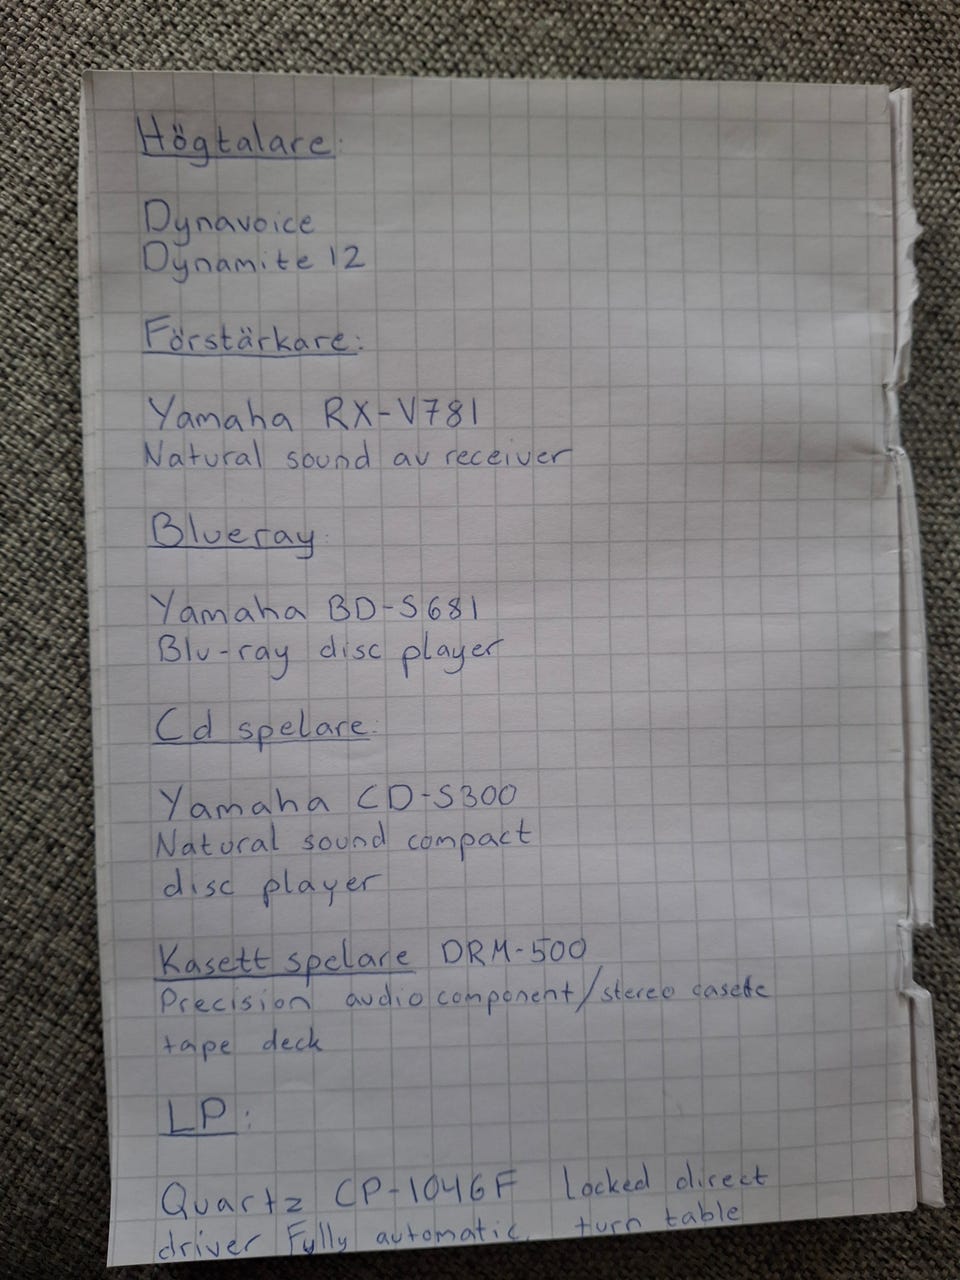 Högtalare:
Dynavoice
Dynamite 12
Förstärkare:
Yamaha RX-V781
Natural sound av receiver
Blueray:
Yamaha BD-S681
Blu-ray disc player
Cd spelare:
Yamaha CD-S300
Natural sound compact
disc player
Kasett spelare DRM-500
Precision audio component/stereo casette
tape deck
LP:
Quartz CP-1046F locked direct
driver Fully automatic turn table